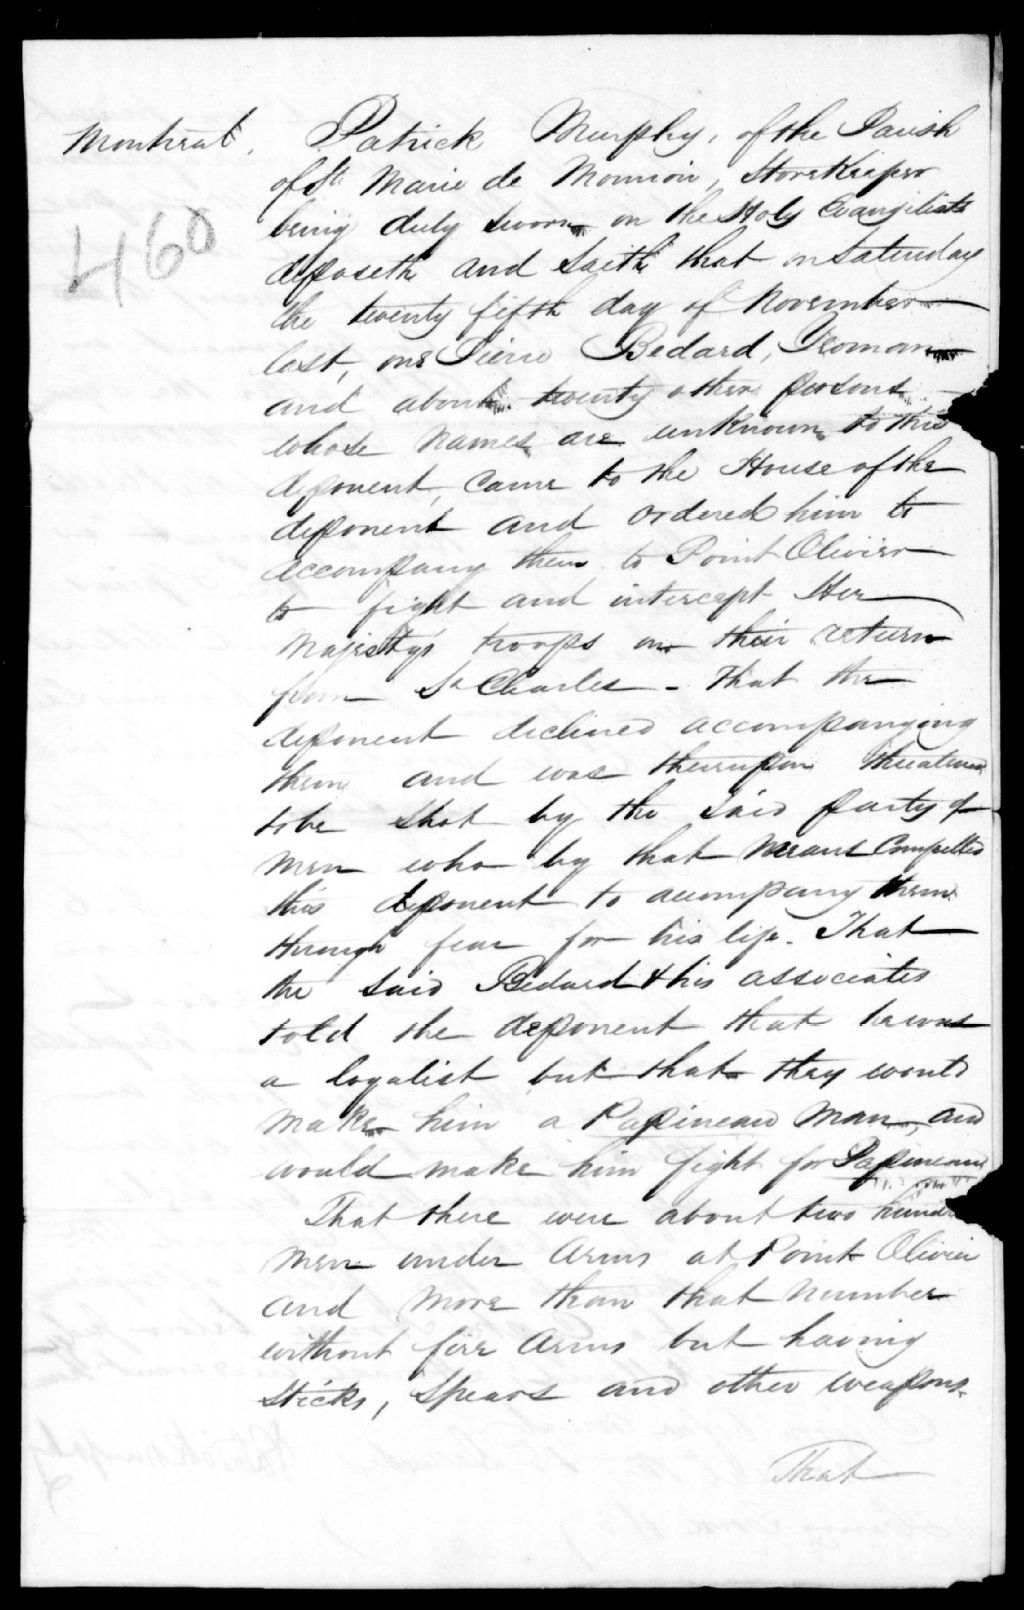 Montreal, Patrick Murphy, of the Parish
of St Marie de Monnoir, Storekeeper
460
being duly sworn on the Holy Evangelists
deposeth and saith that on Saturday
the twenty fifth day of November
last, one Pierre Bedard, Yeoman
and about twenty other persons
whose names are unknown to this
deponent, came to the House of the
deponent and ordered him to
accompany them to Point Olivier
to fight and intercept Her
Majesty's troops on their return
from St Charles - That the
deponent declined accompanying
them and was thereupon threatened
to be shot by the said party of
men who by that means compelled
this deponent to acompany them
through fear for his life. That
the said Bedard & his associates
told the deponent that he was
a loyalist but that they would
make him a Papineau man, and
would make him fight for Papineau
That there were about two hundre
men under arms at Point Olivier
and more than that number
without fire arms but having
sticks, spears and other weapons.
That